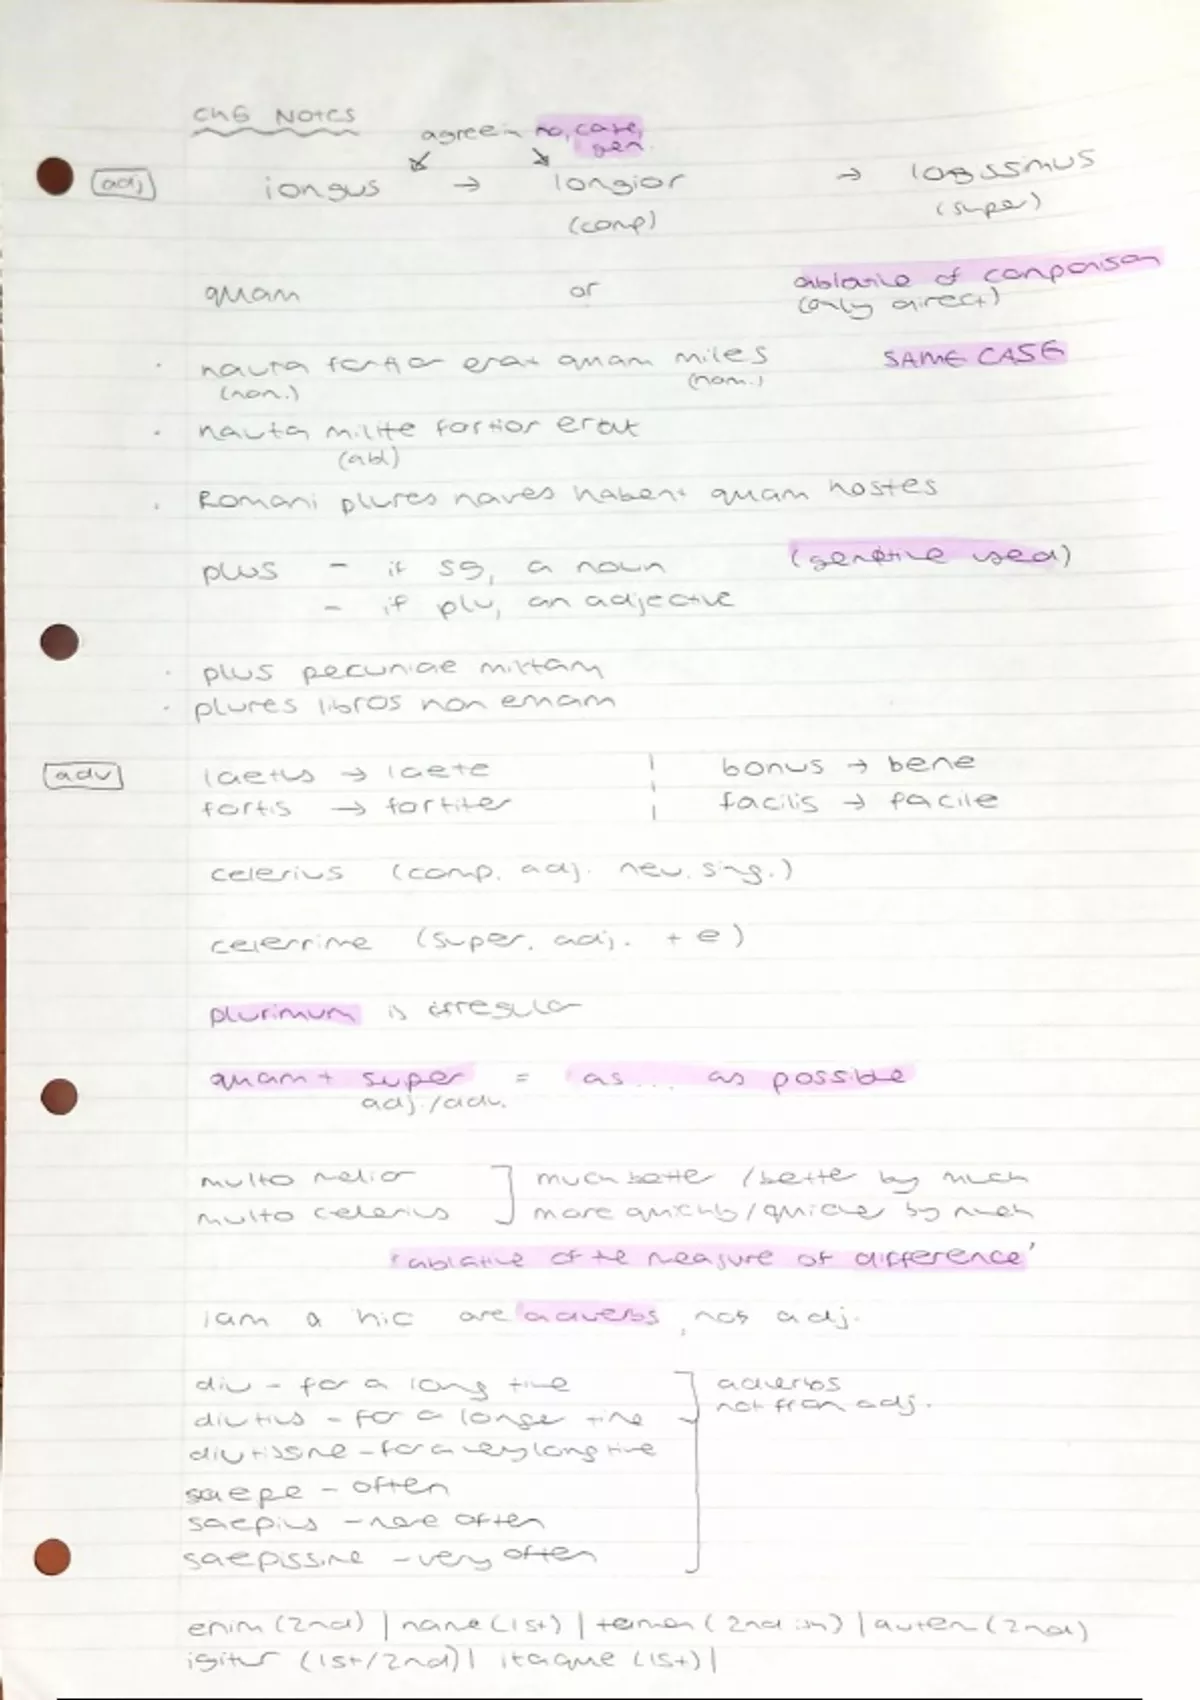 Ch6 Notes
agree in no, case,
gen.
adj longus → longior → logissimus
(comp) (super)
quam or ablative of comparison
(only direct)
· nauta fortior erat quam miles SAME CASE
(nom.) (nom.)
· nauta milite fortior erat
(abl)
· Romani plures naves habent quam hostes
plus - if sg, a noun (genitive used)
- if plu, an adjective
· plus pecuniae mittam
· plures libros non emam
adv laetus → laete | bonus → bene
fortis → fortiter | facilis → facile
celerius (comp. adj. neu. sing.)
celerrime (super. adj. + e)
plurimum is irregular
quam + super = as... as possible
adj./adv.
multo melior ] much better / better by much
multo celerius ] more quickly / quicker by much
'ablative of the measure of difference'
iam a hic are adverbs, not adj.
diu - for a long time ] adverbs
diutius - for a longer time not from adj.
diutissime - for a very long time
saepe - often
saepius - more often
saepissime - very often
enim (2nd) | nam (1st) | tamen (2nd ish) | autem (2nd)
igitur (1st/2nd) | itaque (1st) |